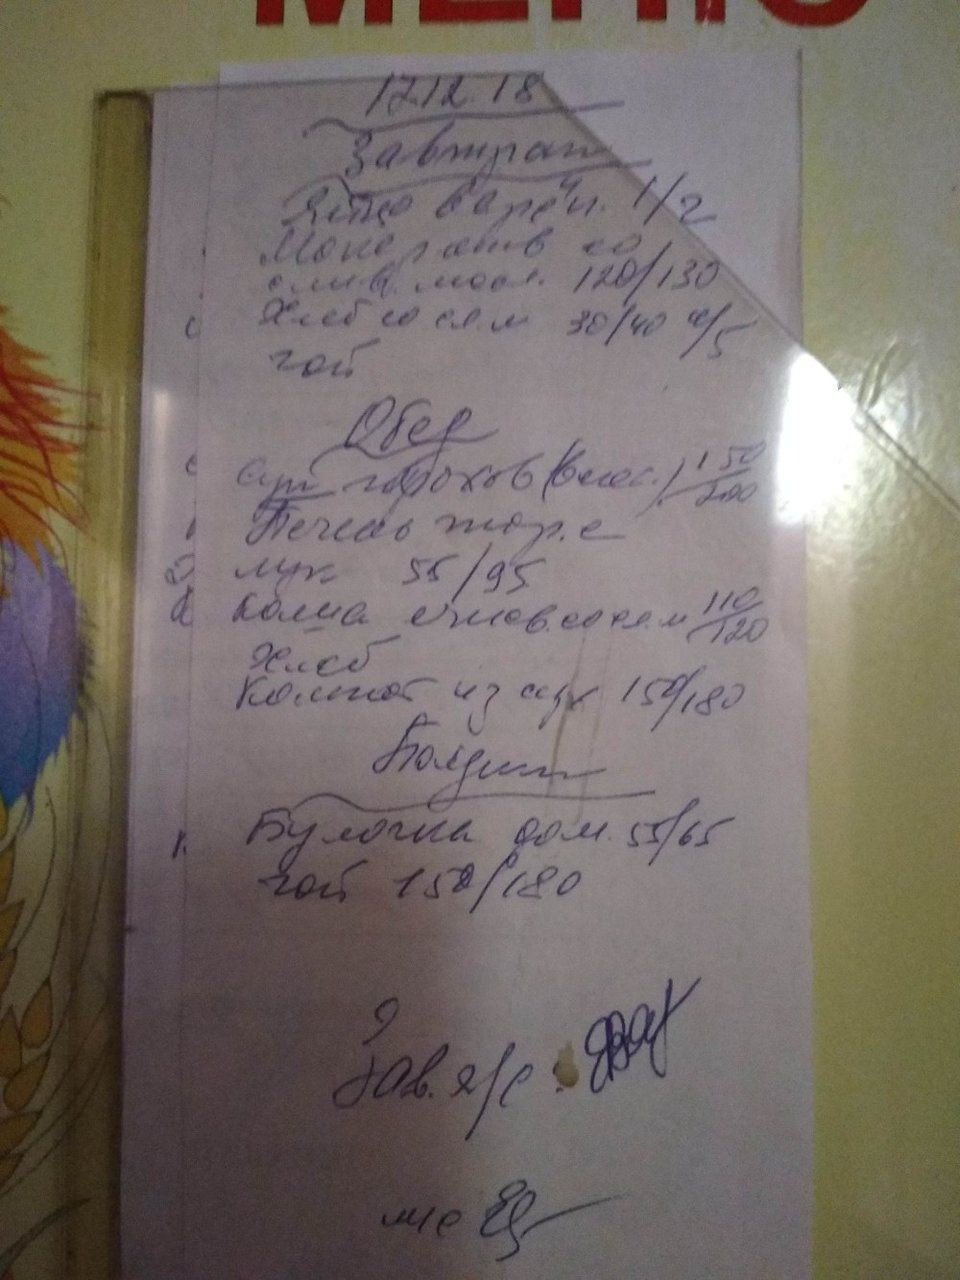 МЕНЮ
17.12.18
Завтрак
Яйцо варён. 1/2
Макер отв со
слив. масл. 120/130
Хлеб со сл м 30/40 4/5
чай
Обед
Суп горохов (вегет.) 150/200
Печень жар. с
лук 55/95
Каша ячнев. со сл м 110/120
Хлеб
Компот из сух 150/180
Полдник
Булочка дом. 55/65
чай 150/180
Зав. я/с
м/с